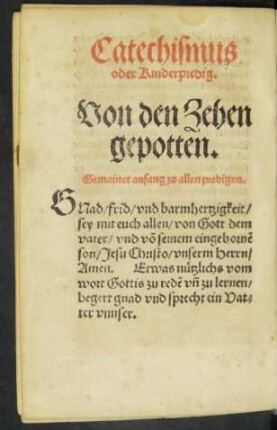 Catechismus
oder Kinderpredig.
Von den Zehen
gepotten.
Gemainer anfang zu allen predigen.
GNad/frid/vnd barmhertzigkeit/
sey mit euch allen/von Gott dem
vater/vnd võ seinem eingebornẽ
son/Jesu Christo/vnserm Herrn/
Amen. Etwas nützlichs vom
wort Gottis zu redẽ vñ zu lernen/
begert gnad vnd sprecht ein Vat-
ter vnnser.